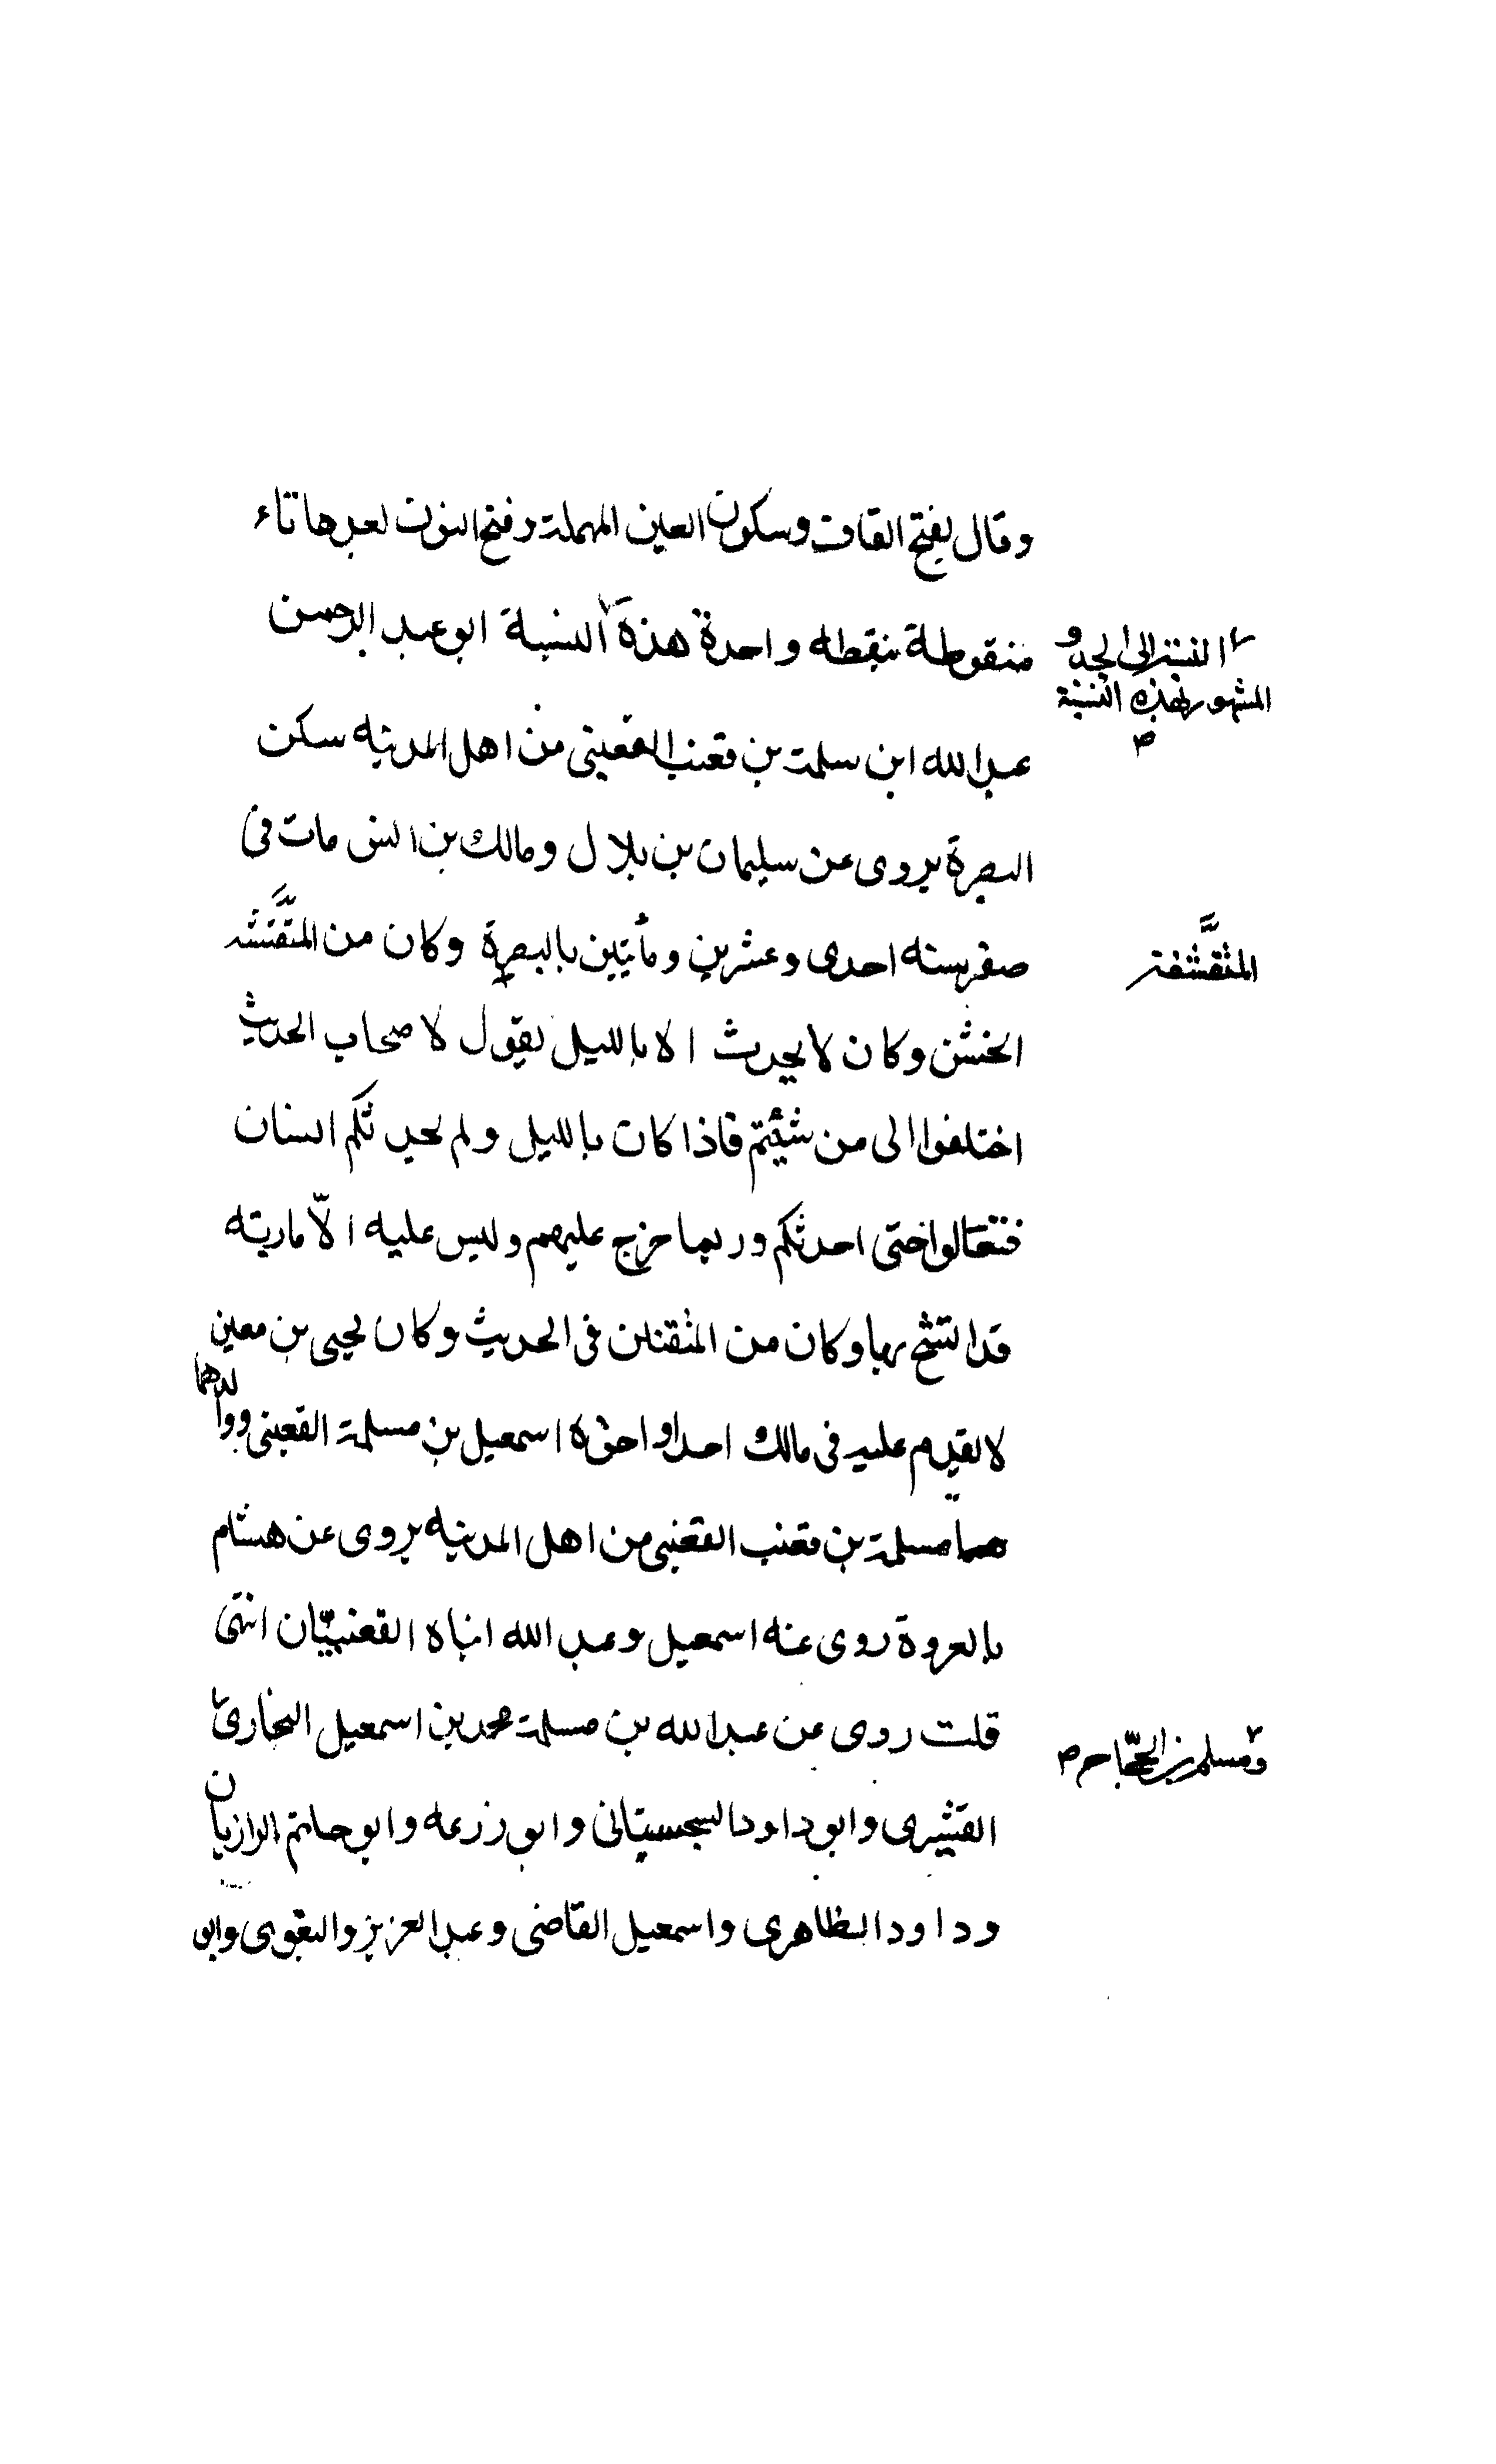 وقال بفتح القاف وسكون العين المهملة وفتح النون بعدها تاء
منقوطة بنقطه واحدة هذه النسبة ابو عبد الرحمن
النسبة الى الجد و
المشهور بهذه النسبة
عبد الله ابن سلمة بن قعنب القعنبى من اهل المدينه سكن
البصرة يروى عن سليمان بن بلال ومالك بن انس مات فى
صفر سنه احدى وعشرين ومأتين بالبصرة وكان من المتقنشه
المتقشفة
الخشن وكان لا يحدث الا بالليل يقول لاصحاب الحديث
اختلفوا الى من شئتم فاذا كان بالليل ولم يحدثكم انسان
فتعالوا حتى احدثكم وربما خرج عليهم وليس عليه الّا ماريته
قد اتشح بها وكان من المتقنين فى الحديث وكان يحيى بن معين
لا يقدم عليه فى مالك احدا واخوه اسمعيل بن مسلمة القعنبى ووالدهما
هما مسلمة بن قعنب القعنبى من اهل المدينه يروى عن هشام
بالعروة روى عنه اسمعيل وعبد الله ابناه القعنبيّان انتهى
قلت روى عن عبد الله بن مسلمة محمد بن اسمعيل البخارى
ومسلم بن الحجّاج
القشيرى وابو داود السجستانى وابو زرعه وابو حاتم الرازيان
وداود الظاهرى واسمعيل القاضى وعبد العزيز والبغوى وابو